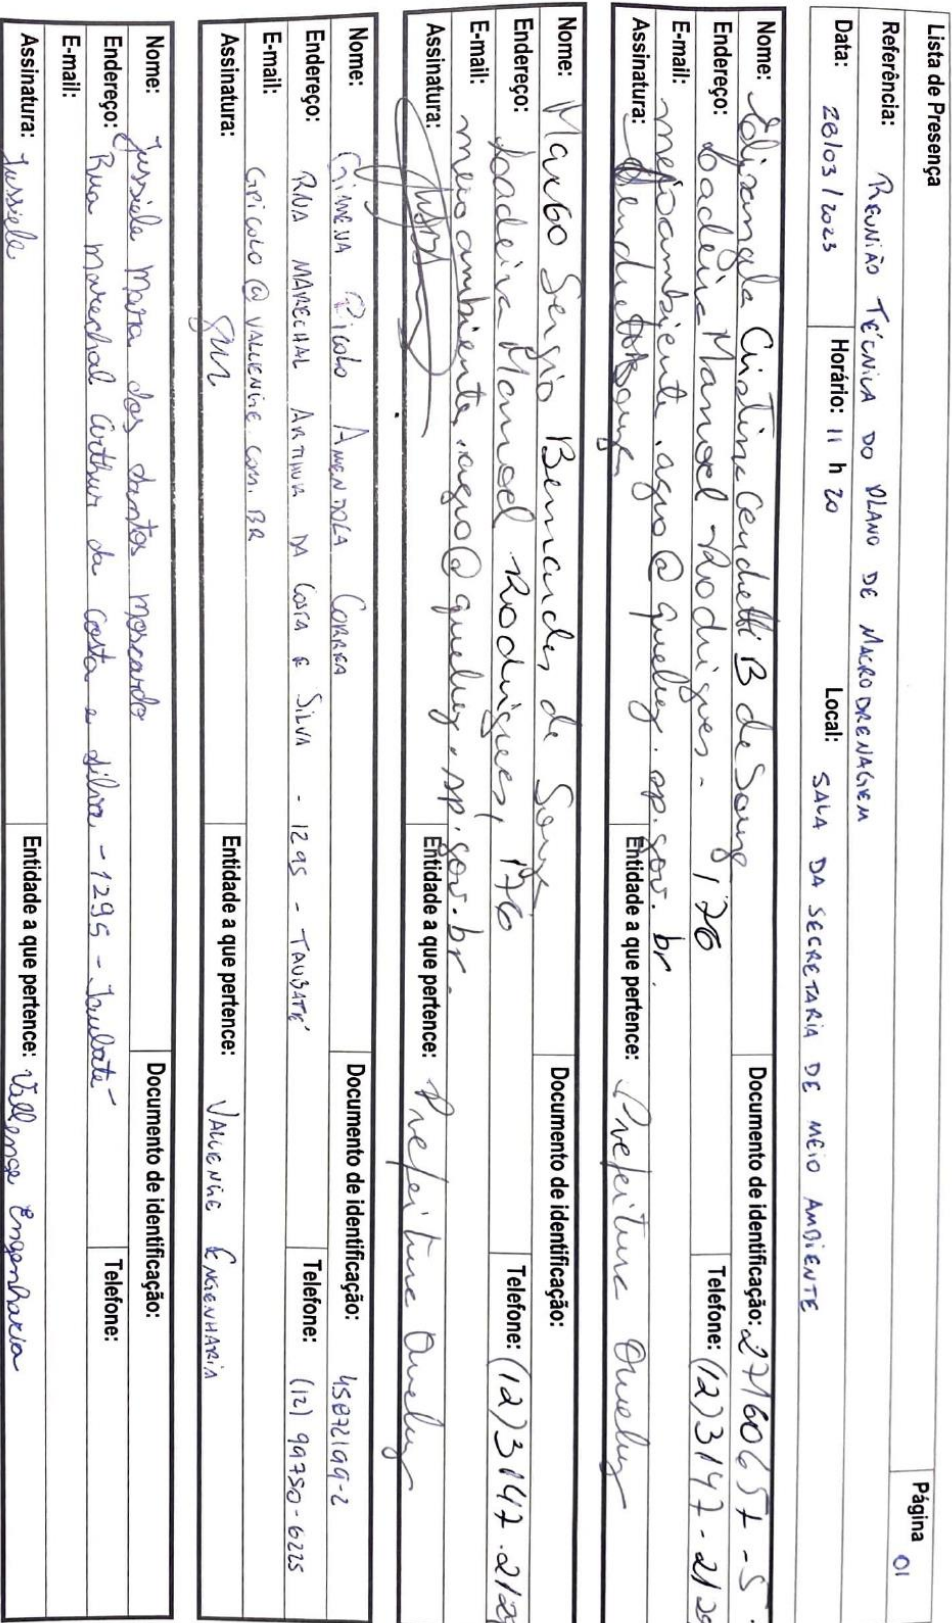 Lista de Presença
Página 01
Referência: REUNIÃO TÉCNICA DO PLANO DE MACRODRENAGEM
Data: 28/03/2023 Horário: 11 h 20 Local: SALA DA SECRETARIA DE MEIO AMBIENTE
Nome: Elisangela Cristina Cendretti B de Souza Documento de identificação: 27160657-5
Endereço: Manoel Rodrigues - 176 Telefone: (12) 3147-212
E-mail: meioambiente.agua@queluz.sp.gov.br.
Assinatura: Entidade a que pertence: Prefeitura Queluz
Nome: Marco Sergio Bernardes de Souza Documento de identificação:
Endereço: Manoel Rodrigues, 176 Telefone: (12) 3147-212
E-mail: meioambiente.agua@queluz.sp.gov.br.
Assinatura: Entidade a que pertence: Prefeitura Queluz
Nome: GIMENA PICOLO AMENDOLA CORREA Documento de identificação: 45872199-2
Endereço: RUA MARECHAL ARTHUR DA COSTA E SILVA - 1295 - TAUBATÉ Telefone: (12) 99750-6225
E-mail: GPICOLO@VALLENGE.COM.BR
Assinatura: Entidade a que pertence: VALLENGE ENGENHARIA
Nome: Jussiele Mara dos Santos Moscardo Documento de identificação:
Endereço: Rua Marechal Arthur da Costa e Silva - 1295 - Taubaté Telefone:
E-mail:
Assinatura: Jussiele Entidade a que pertence: Vallenge Engenharia